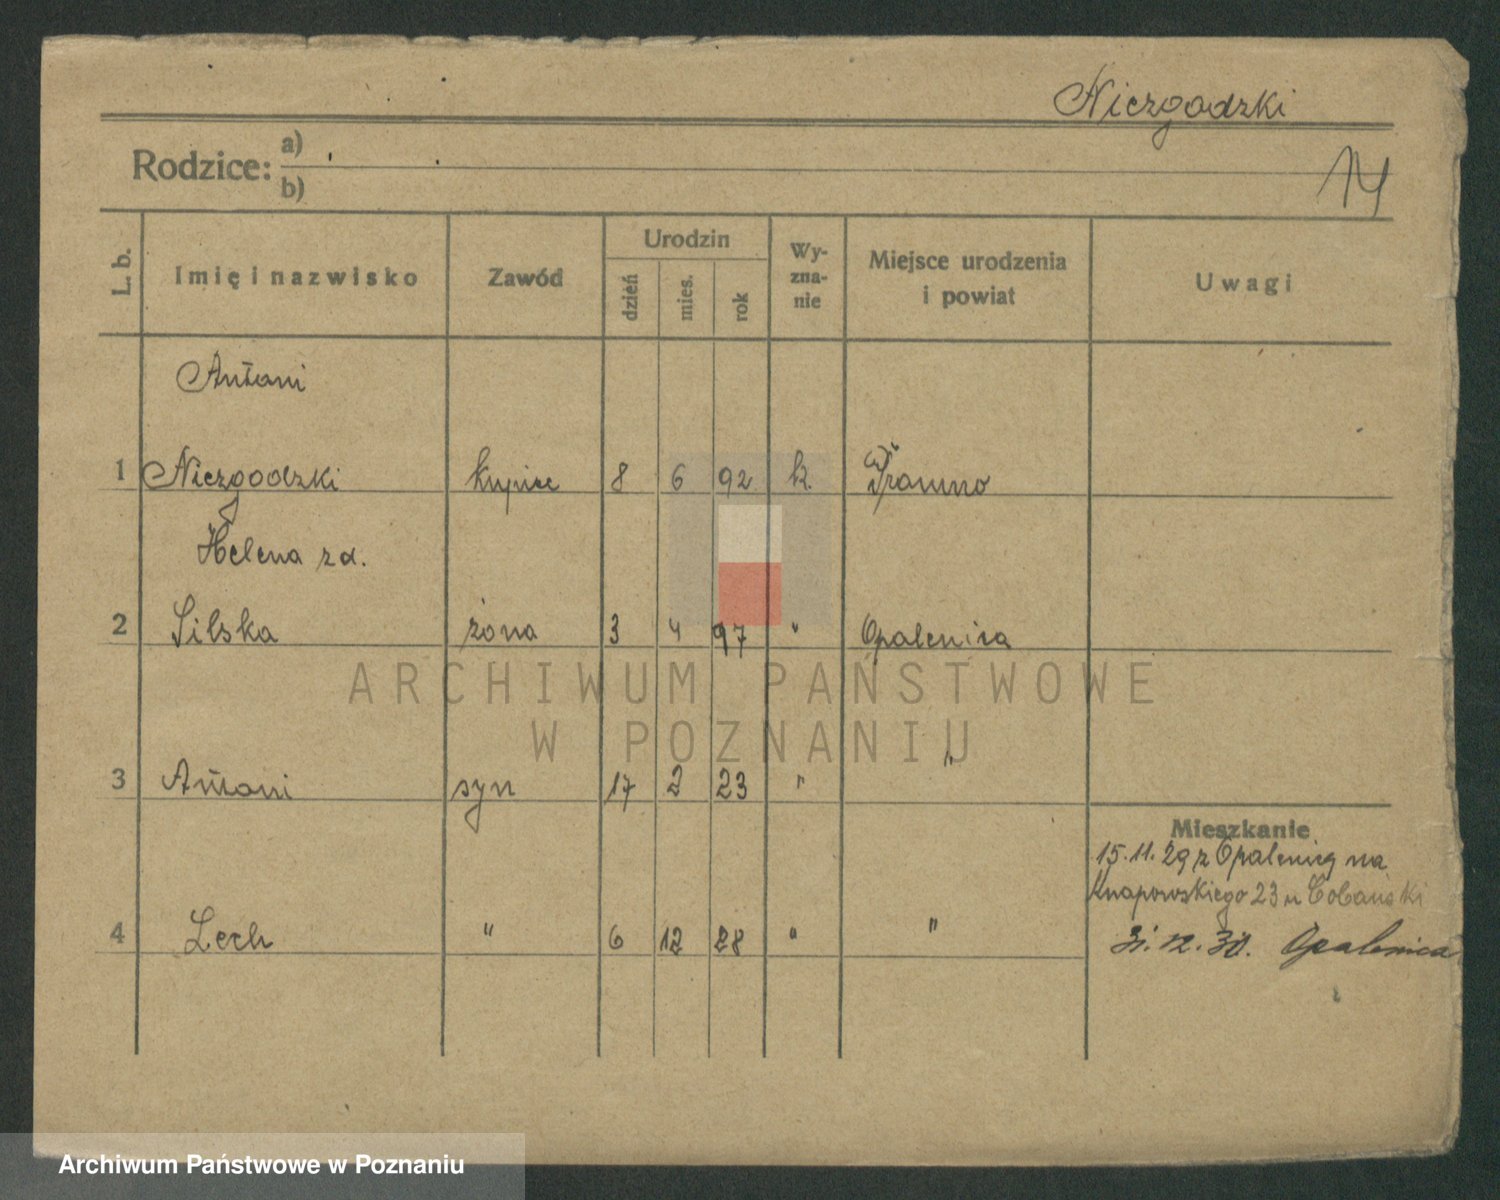 Niezgodzki
Rodzice: a)
b)
14
L. b.
Imię i nazwisko
Zawód
Urodzin
dzień
mies.
rok
Wy-
zna-
nie
Miejsce urodzenia
i powiat
Uwagi
Antoni
1 Niezgodzki kupiec 8 6 92 k.
Helena z d.
2 Silska żona 3 4 97 " Opalenica
3 Antoni syn 17 2 23 " "
Mieszkanie
15.11.29 z Opalenicy na
Knapowskiego 23 u
4 Lech " 6 12 28 " "
31.12.30. Opalenica
ARCHIWUM PAŃSTWOWE
W POZNANIU
Archiwum Państwowe w Poznaniu